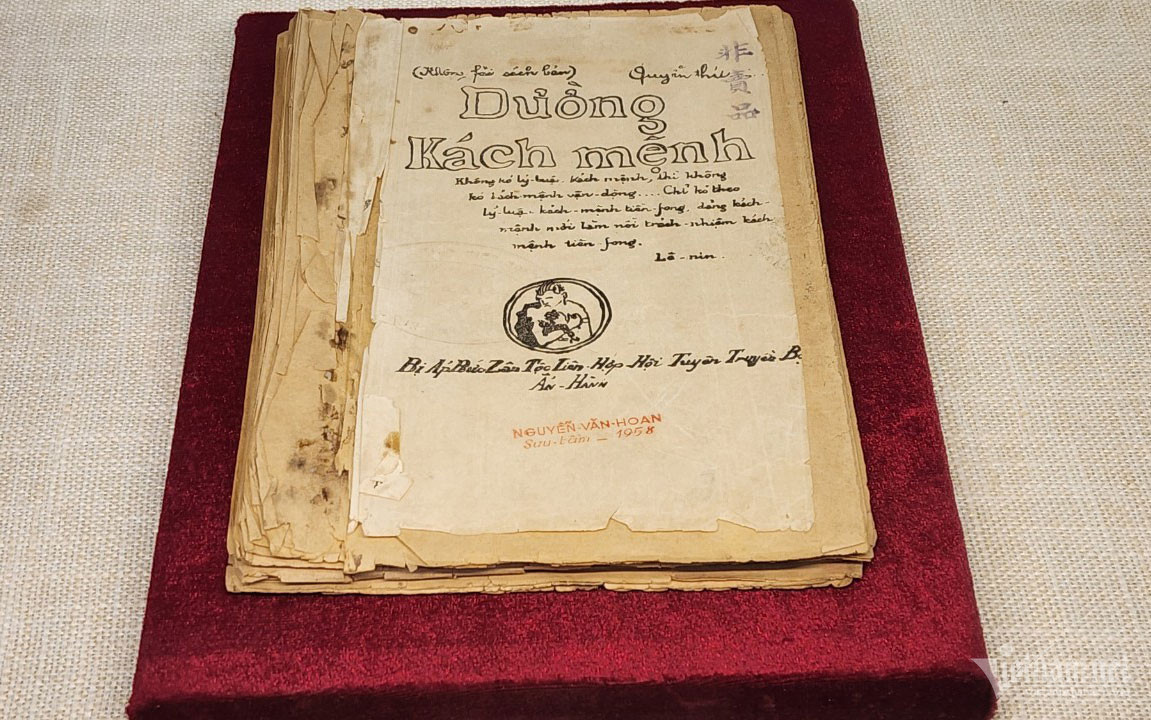 (Không fải sách bán) Quyển thứ
非賣品
Đường
Kách mệnh
Không kó lý-luận kách mệnh, thì không
kó kách mệnh vận-động.... Chỉ kó theo
lý-luận kách-mệnh tiên-fong, đảng kách-
mệnh mới làm nổi trách-nhiệm kách
mệnh tiên-fong.
Lê-nin.
Bị Áp Bức Zân Tộc Liên-Hợp Hội Tuyên Truyền Bộ
Ấn-Hành
NGUYỄN-VĂN-HOAN
Sưu-tầm - 1958
T